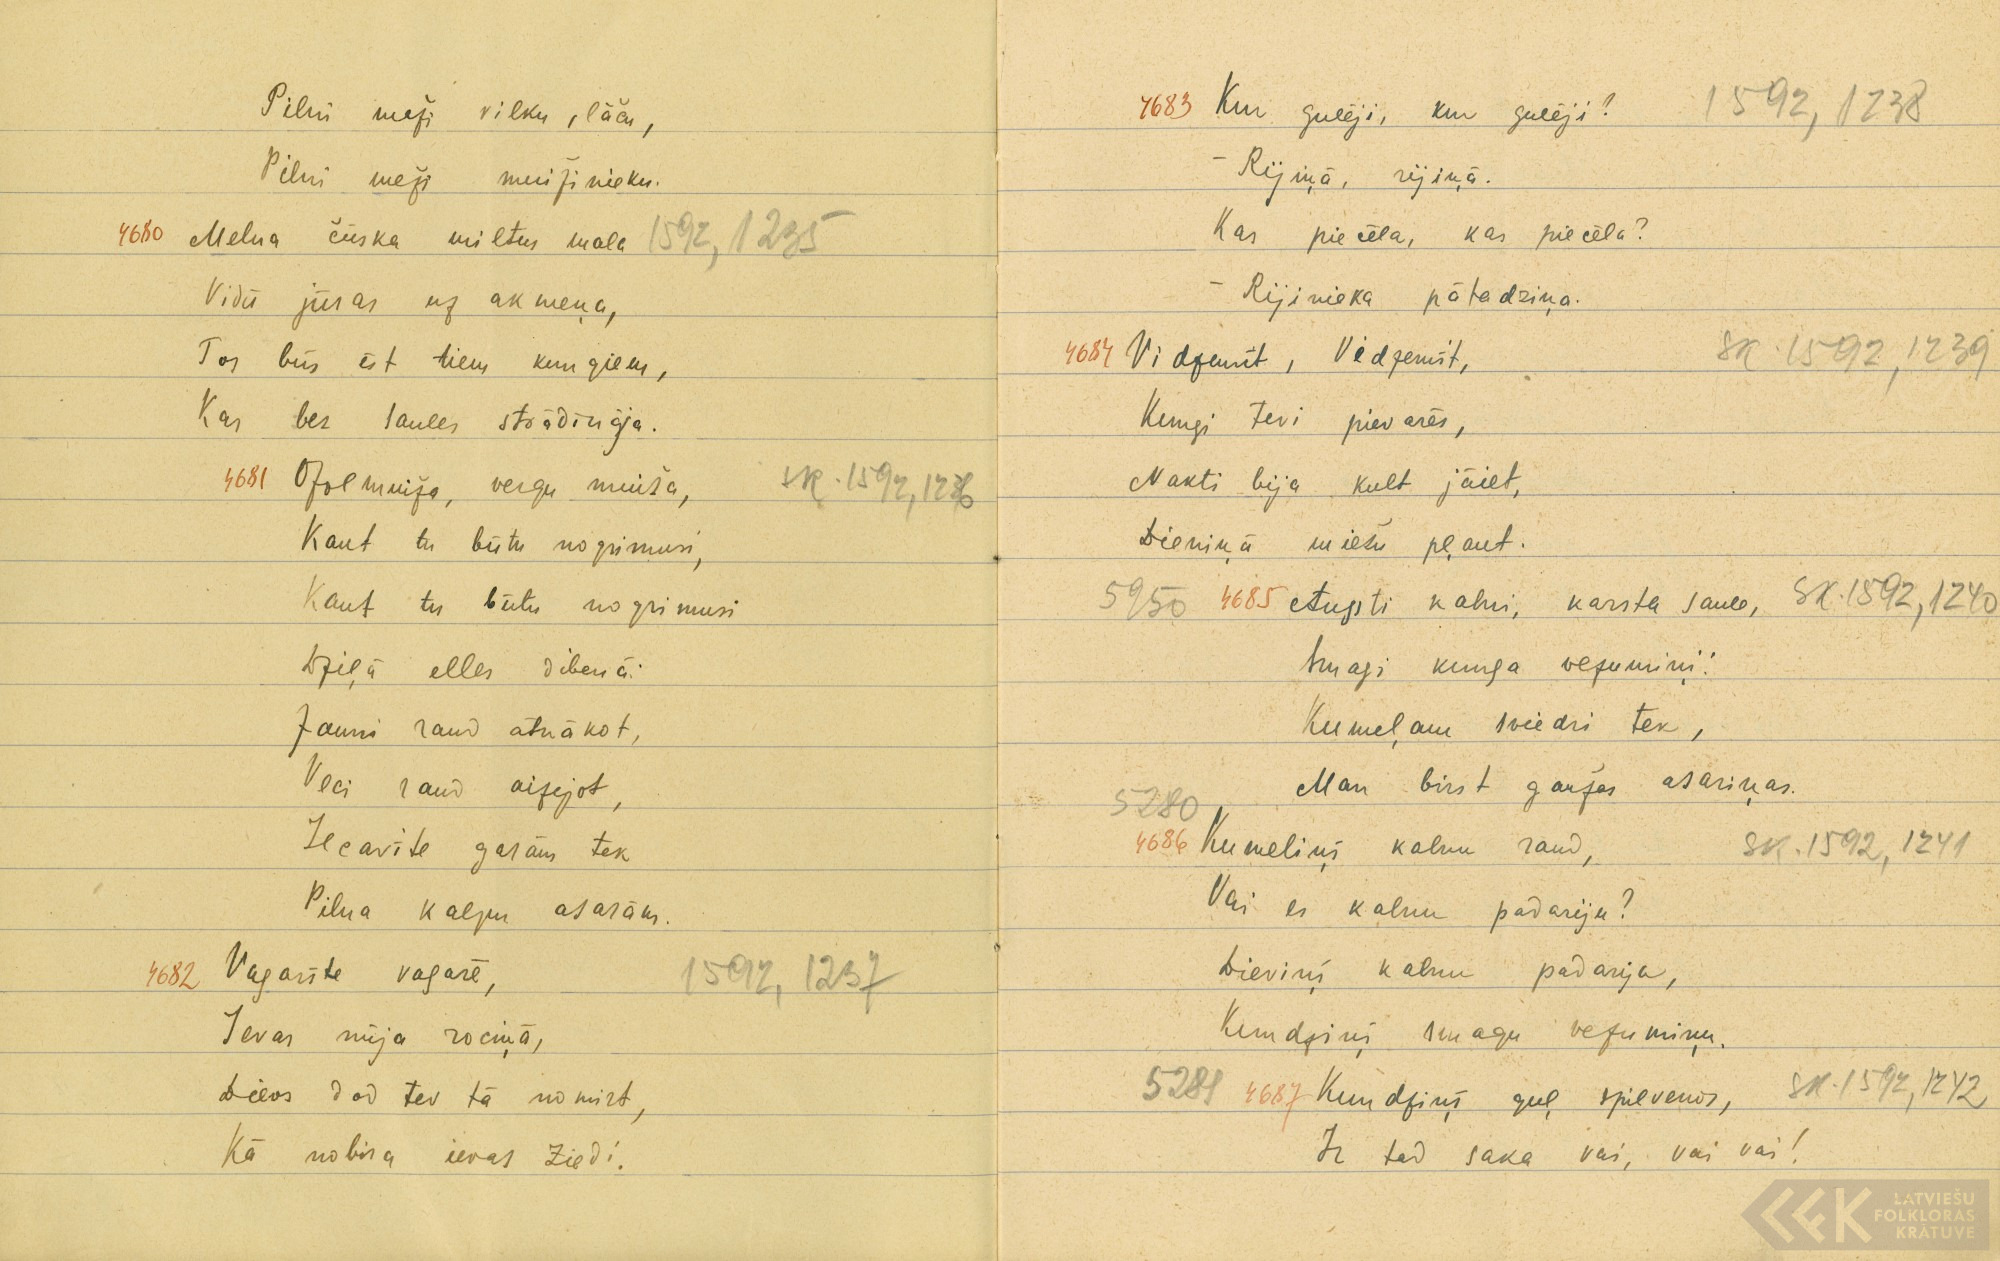 Pilni meži vilku, lāču,
Pilni meži muižinieku.
4680 Melna čūska miltus mala 1592, 1235
Vidū jūras uz akmeņa,
Tos būs ēst tiem kungiem,
Kas bez saules strādināja.
4681 Ozolmuiža, vergu muiša, SK. 1592, 1236
Kaut tu būtu nogrimusi,
Kaut tu būtu nogrimusi
Dziļā elles dibenā:
Jauni raud atnākot,
Veci raud aizejot,
Iecavīte garām tek
Pilna kalpu asarām.
4682 Vagarīte vagarē, 1592, 1237
Ievas nūja rociņā,
Dievs dod tev tā nomirt,
Kā nobira ievas ziedi.
4683 Kur gulēji, kur gulēji? 1592, 1238
- Rijiņā, rijiņā.
Kas piecēla, kas piecēla?
- Rijinieka pātadziņa.
4684 Vidzemīt, Vidzemīt, SK. 1592, 1239
Kungi tevi pievarēs,
Nakti bija kult jāiet,
Dieniņā miežu pļaut.
5950 4685 Augsti kalni, karsta saule, SK. 1592, 1240
Smagi kunga vezumiņi:
Kumeļam sviedri tek,
Man birst gaužas asariņas.
5280
4686 Kumeliņš kalnu raud, SK. 1592, 1241
Vai es kalnu padariju?
Dieviņš kalnu padarija,
Kundziņš smagu vezumiņu.
5281 4687 Kundziņš guļ spilvenos, SK. 1592, 1242
Ir tad saka vai, vai vai!
LATVIEŠU
FOLKLORAS
KRĀTUVE